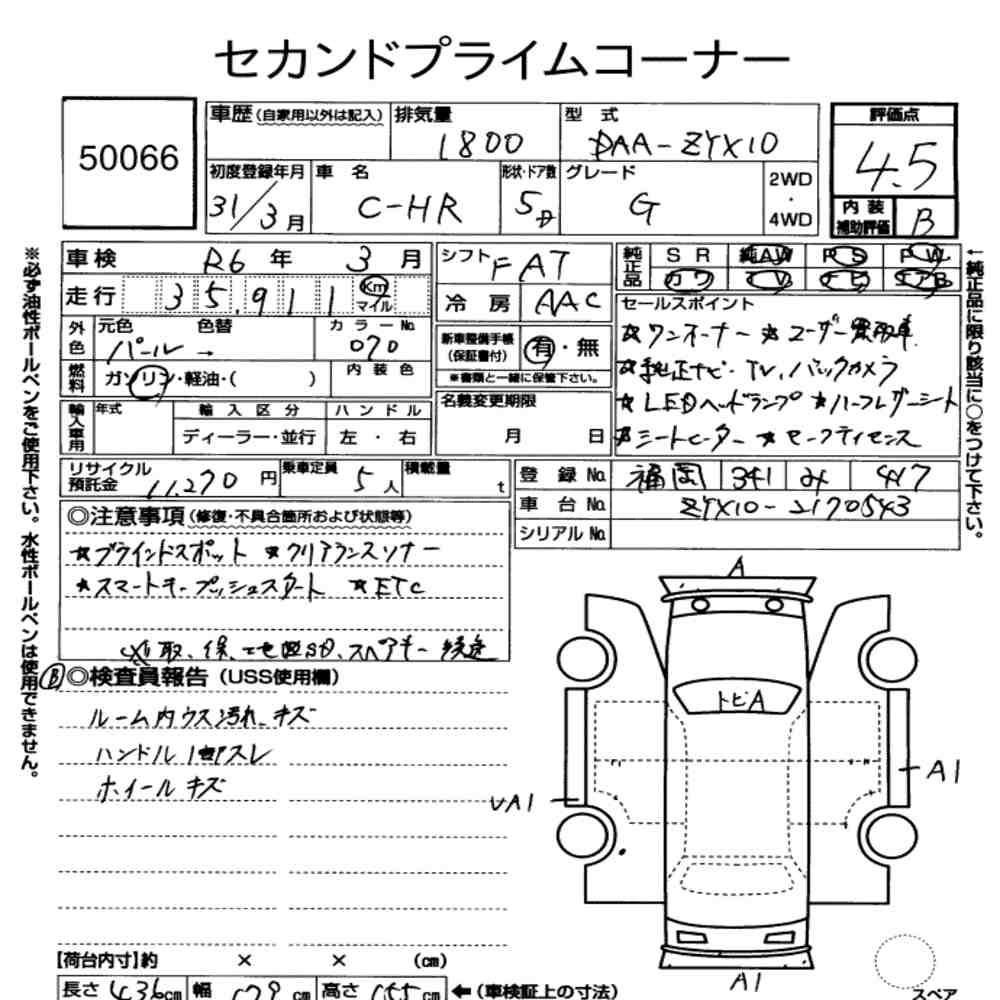 セカンドプライムコーナー
50066
車歴 (自家用以外は記入)
排気量
1800
型 式
DAA-ZYX10
評価点
4.5
初度登録年月
31/3月
車 名
C-HR
形状・ドア数
5D
グレード
G
2WD
・
4WD
内 装
補助評価
B
車検 R6年 3月
走行 35,911 Km マイル
シフト FAT
冷 房 AAC
純正品 SR 純AW PS PW
カワ TV ナビ エアB
外色
元色 色替
パール →
カラーNo.
070
燃料 ガソリン・軽油・( )
内 装 色
新車整備手帳
(保証書付)
有・無
※書類と一緒に保管下さい。
名義変更期限
月 日
輸入車用
年式
輸 入 区 分
ディーラー・並行
ハ ン ド ル
左 ・ 右
セールスポイント
★ワンオーナー ★ユーザー買取車
★純正ナビ・TV、バックカメラ
★LEDヘッドランプ ★ハーフレザーシート
★シートヒーター ★セーフティセンス
リサイクル
預託金
11,270円
乗車定員
5人
積載量
t
登 録 No. 福岡 341 み 417
車 台 No. ZYX10-2170543
シリアルNo.
◎注意事項 (修復・不具合箇所および状態等)
★ブラインドスポット ★クリアランスソナー
★スマートキープッシュスタート ★ETC
取、保、スペアキー 後送
B ◎検査員報告 (USS使用欄)
ルーム内ウス汚れ、キズ
ハンドル1部スレ
ホイールキズ
A
トビA
A1
UA1
A1
【荷台内寸】約 × × (cm)
長さ 436cm 幅 179cm 高さ 155cm ←(車検証上の寸法)
スペア
※必ず油性ボールペンをご使用下さい。水性ボールペンは使用できません。
←純正品に限り該当に○をつけて下さい。